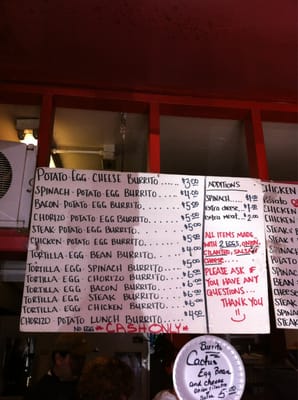 POTATO EGG CHEESE BURRITO ..... $3.00
SPINACH POTATO EGG BURRITO ..... $4.00
BACON POTATO EGG BURRITO ..... $5.00
CHORIZO POTATO EGG BURRITO ..... $5.00
STEAK POTATO EGG BURRITO ..... $5.00
CHICKEN POTATO EGG BURRITO ..... $5.00
TORTILLA EGG BEAN BURRITO ..... $4.00
TORTILLA EGG SPINACH BURRITO ..... $5.00
TORTILLA EGG CHORIZO BURRITO ..... $6.00
TORTILLA EGG BACON BURRITO ..... $6.00
TORTILLA EGG STEAK BURRITO ..... $6.00
TORTILLA EGG CHICKEN BURRITO ..... $6.00
CHORIZO POTATO LUNCH BURRITO ..... $4.00
NO EGG *CASH ONLY*
ADDITIONS
SPINACH ..... $1.00
extra cheese ..... $1.00
extra meat ..... $2.00
ALL ITEMS MADE
WITH 2 EGGS, ONION
CILANTRO, SALSA &
CHEESE...
PLEASE ASK IF
YOU HAVE ANY
QUESTIONS.
THANK YOU
CHICKEN
CHICKEN
POTATO
CHICKEN
CHICKEN
SPINACH
CHICKEN
SPINACH
POTATO
SPINACH
BEAN
SPINACH
Burrito
Cactus
Egg Bean
and cheese
onion cilantro
Salsa 5.00